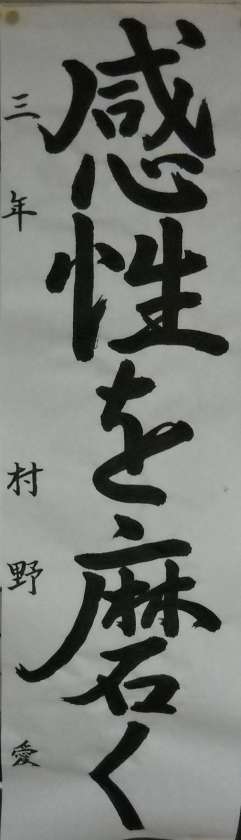 感性を磨く
三年 村野愛